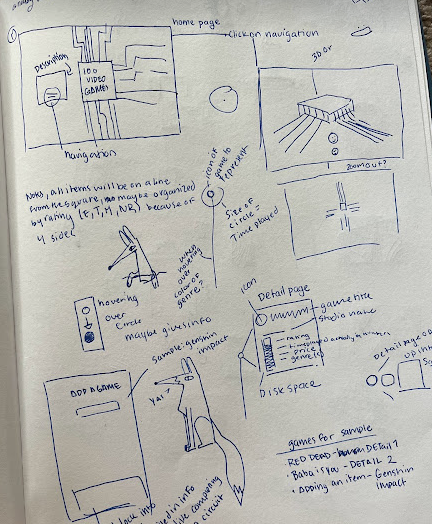 home page
Click on navigation
Description
100
VIDEO
GAMES
navigation
3D or
zoom out?
Note, all items will be on a line
from the square, maybe organized
by rating (E,T,M,NR) because of
4 sides
icon of
game to
represent
Size of
circle =
Time played
when
hovering
over
color of
genre
hovering
over
circle
maybe gives info
sample: genshin
impact
ADD A GAME
YAY
icon
Detail page
game title
studio name
rating
price
genre(s)
Disk space
detail page
games for sample
• RED DEAD - DETAIL 1
• Baba is you - DETAIL 2
• Adding an item - Genshin
Impact
info
circuit